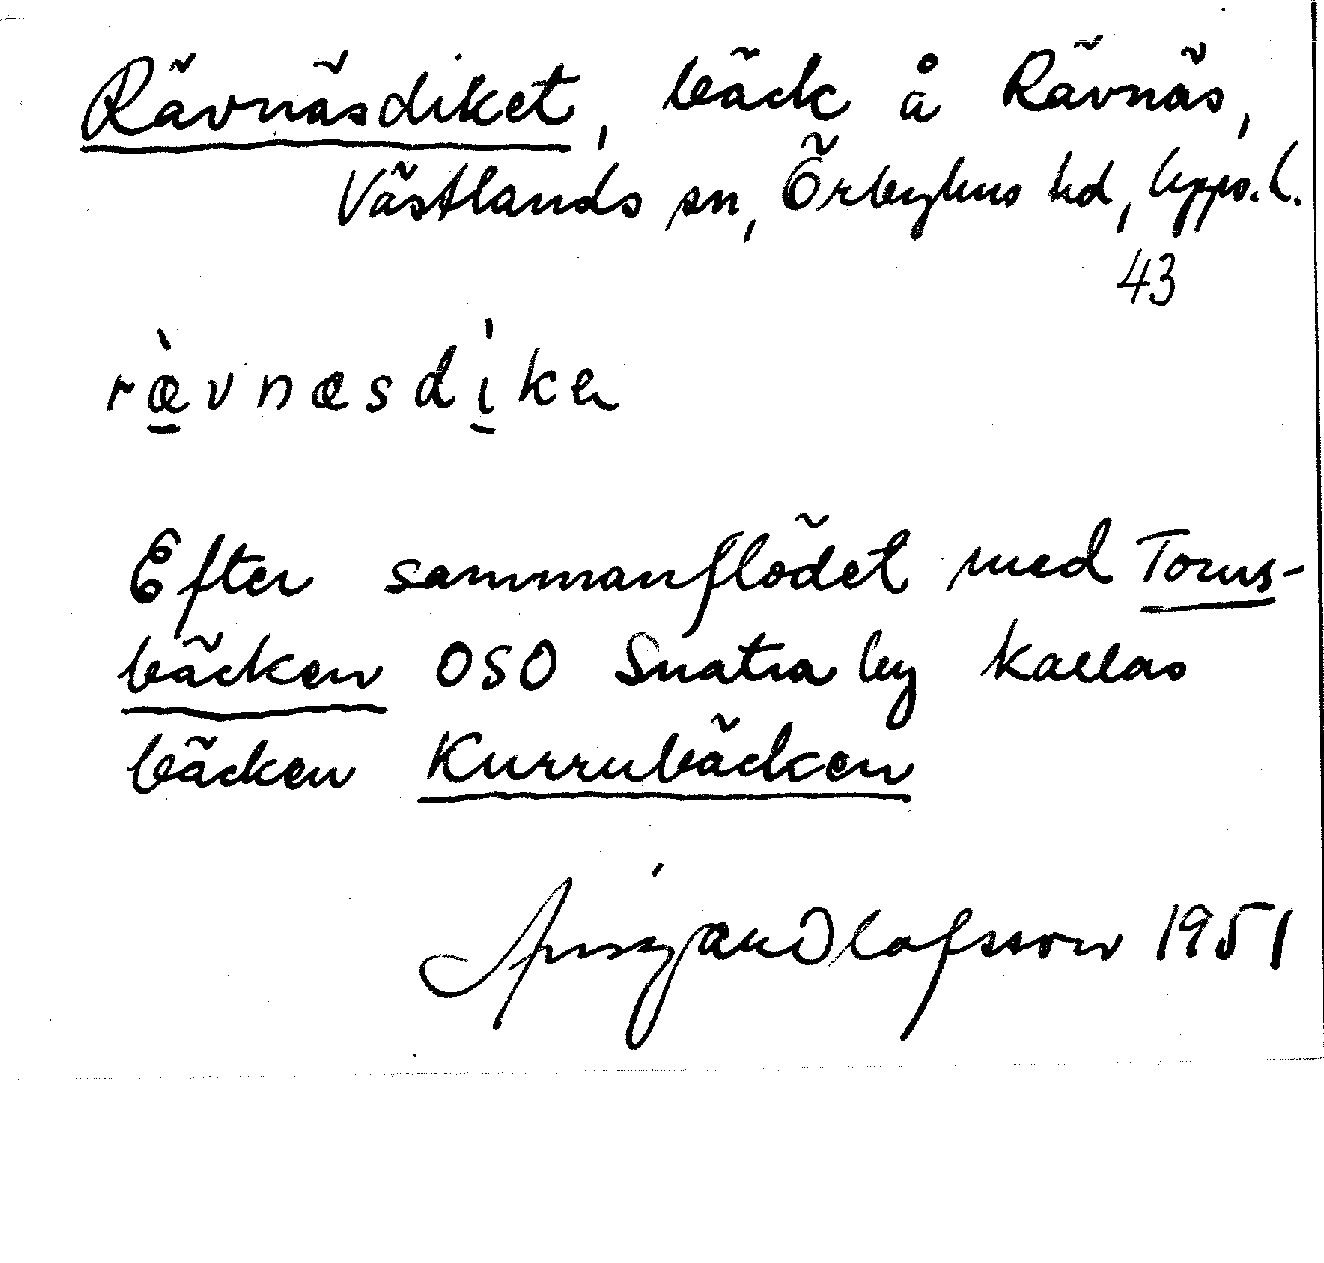 Rävnäsdiket, bäck å Rävnäs,
Västlands sn, Örbyhus hd, Upps. l.
43
ræ̀vnæsdi̍ kə
Efter sammanflödet med Torus-
bäcken OSO Snatra by kallas
bäcken Kurrubäcken
Olofsson 1951